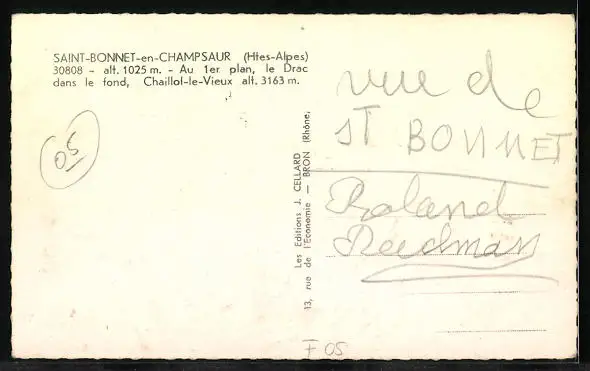 SAINT-BONNET-en-CHAMPSAUR (Htes-Alpes)
30808 - alt. 1025 m. - Au 1er plan, le Drac
dans le fond, Chaillol-le-Vieux alt. 3163 m.
05
Les Editions J. CELLARD
13, rue de l'Economie — BRON (Rhône)
vue de
ST BONNET
Roland
F 05